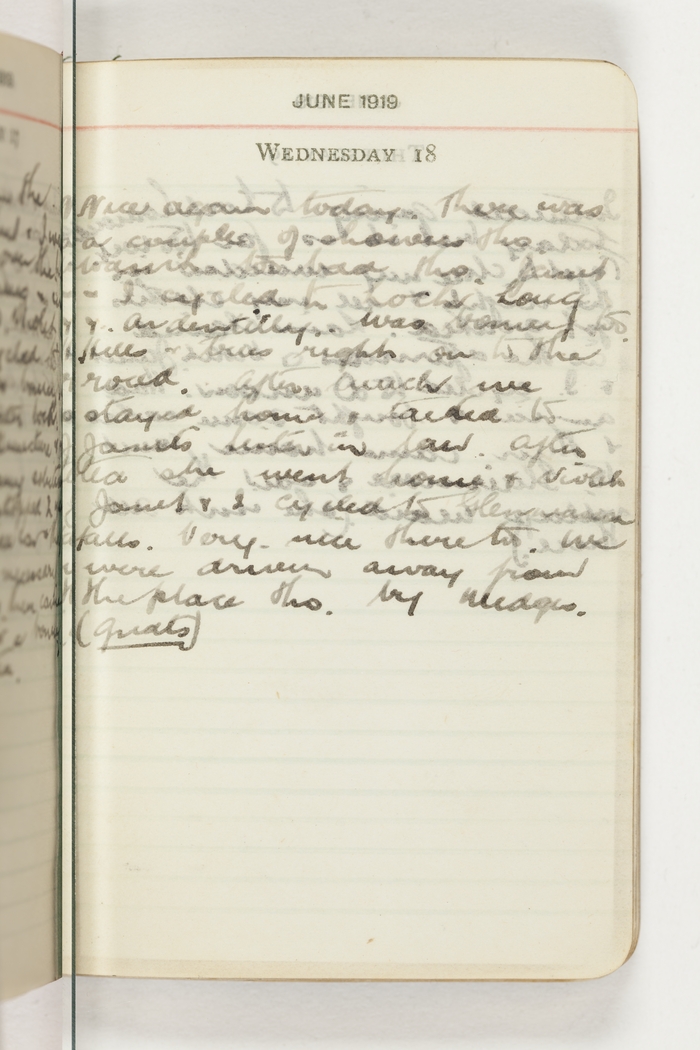 JUNE 1919
WEDNESDAY 18
Nice again today. There was
a couple of showers tho.
tho. Janet
& I cycled to Loch Long
& Ardentilly. Was bonny too.
hills & trees right on to the
road. After lunch we
stayed home & talked to
Janets in law. After
tea she went home & Violet
Janet & I cycled to Glenmassan
falls. Very nice there to. We
were driven away from
the place tho. by midges.
(gnats)